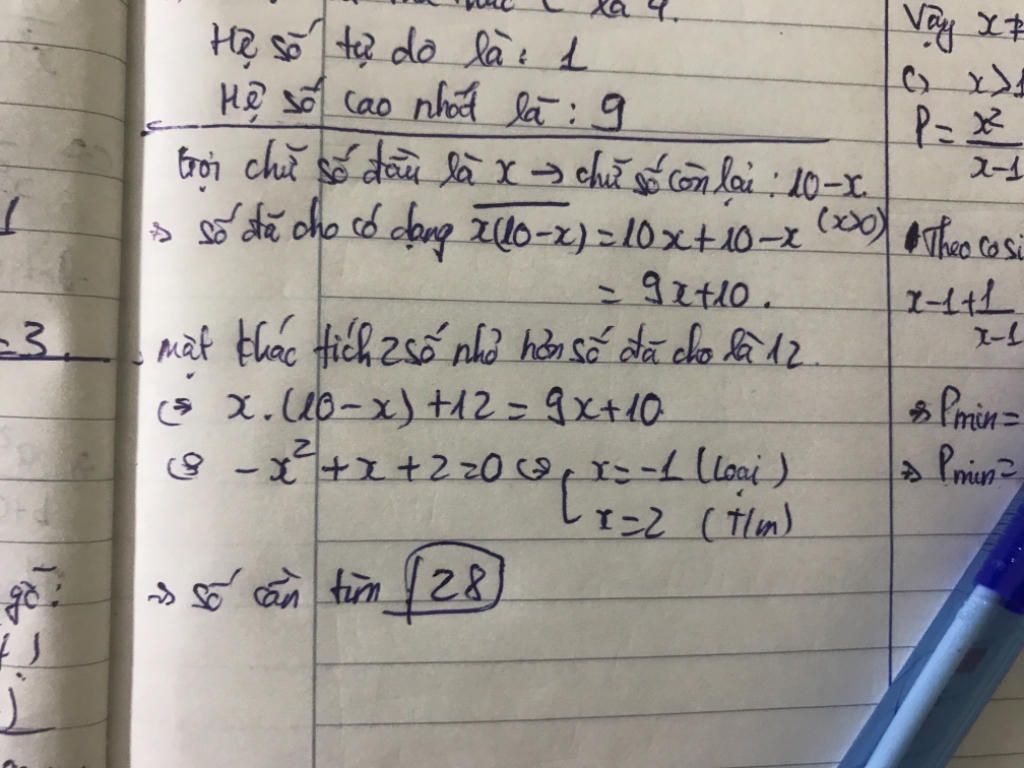 là 4.
Hệ số tự do là: 1
Hệ số cao nhất là: 9
Gọi chữ số đầu là x → chữ số còn lại: 10-x
⇒ số đã cho có dạng x(10-x) = 10x+10-x (x>0)
= 9x+10.
mặt khác tích 2 số nhỏ hơn số đã cho là 12.
⇔ x.(10-x)+12 = 9x+10
⇔ -x²+x+2=0 ⇔ [ x=-1 (loại)
x=2 (t/m)
⇒ số cần tìm 28
1
=3
gỗ:
Vậy x≠
c) x>1
P = x²
x-1
Theo cosi
x-1+1
x-1
⇒ Pmin =
⇒ Pmin =